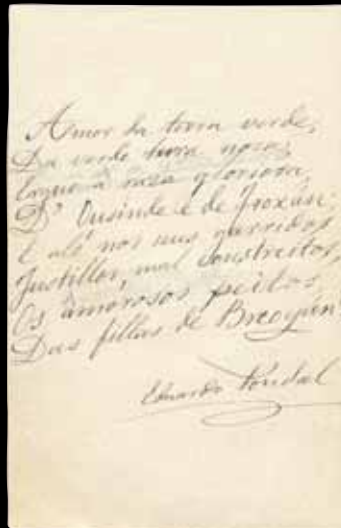 Amor da terra verde,
Da verde terra nosa,
á raza gloriosa,
D' Ousinde e de Froxán;
E aló nos seus garridos
Justillos, mal constreitos,
Os amorosos peitos
Das fillas de Breogán
Eduardo Pondal